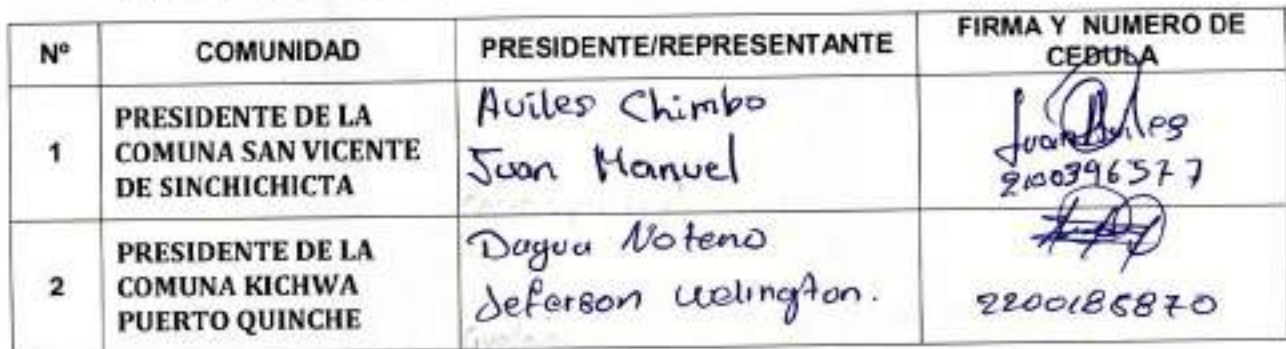 Nº COMUNIDAD PRESIDENTE/REPRESENTANTE FIRMA Y NUMERO DE CEDULA
1
PRESIDENTE DE LA
COMUNA SAN VICENTE
DE SINCHICHICTA
Aviles Chimbo
Juan Manuel
Juan Aviles
2100396577
2
PRESIDENTE DE LA
COMUNA KICHWA
PUERTO QUINCHE
Dagua Noteno
Jeferson Welington.
2200185870